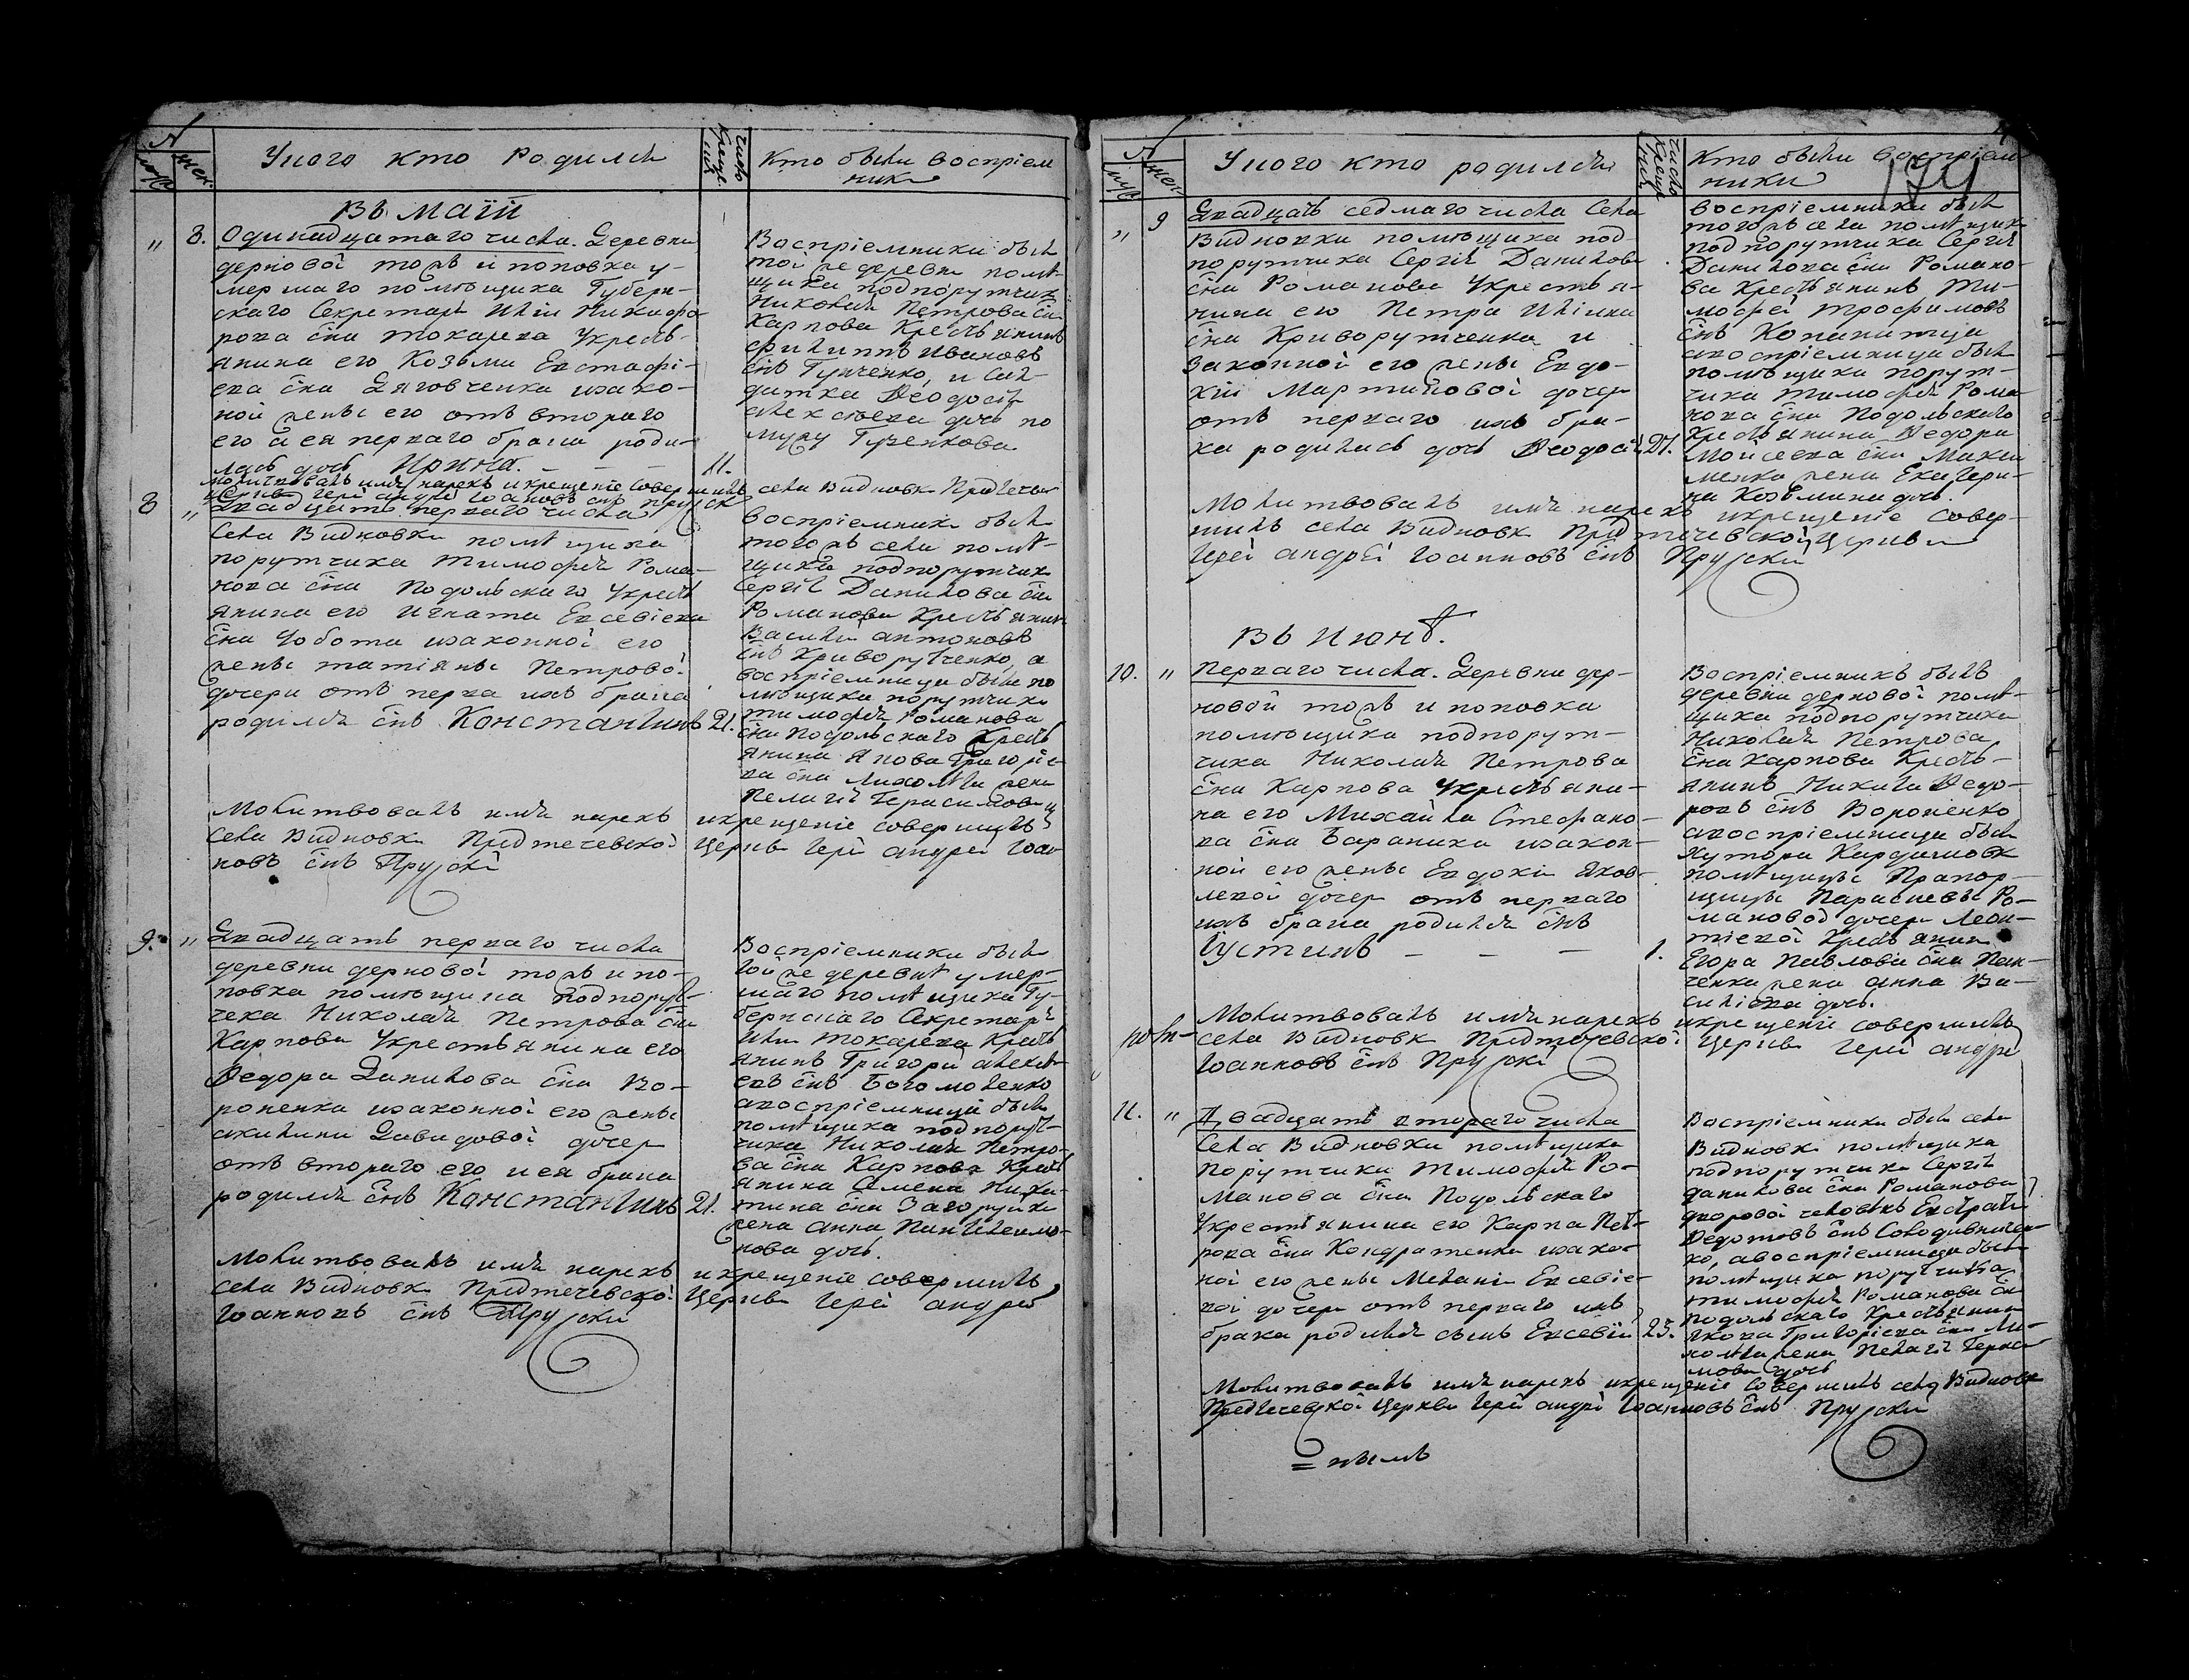 N
муж.
жен.
У кого кто Родился
число крещенія
Кто были воспріем
ники
Въ маіи
„ 8. Одинадцатаго числа. Деревни
дерновой тожъ и поповка у-
мершаго помѣщика Губерн-
скаго Секретаря Иліи Никифо
рова сна Токарева Укресть-
янина его Козьмы Евстафі-
ева сна Дяговченка изако-
ной жены его отъ втораго
его а ея перваго брака роди-
лась дочь Ирина. — — — 11.
Воспріемники были
той же деревни помѣ-
щика подпорутчика
Николая Петрова сна
Карпова Крестьянинъ
Филиппъ Ивановъ
снъ Гунченко, и
Ѳеодосія
дочь по
мужу
Молитвовалъ имя нарекъ и крещеніе совершилъ села Видновки Предтечев
Церкви Іерей Андрей Іоанновъ снъ Прускій
8 „ Двадцать перваго числа
Села Видновки помѣщика
порутчика Тимофея Рома-
нова сна Подольскаго Укресть
янина его Игната Евсевіева
сна Чобота изаконной его
жены Татіяны Петровой
дочери отъ перва ихъ брака
родился снъ Константинъ 21.
воспріемники были
тогожъ села помѣ-
щика подпорутчика
Сергія Данилова сна
Романова Крестьянин
Василій Антоновъ
снъ Криворутченко, а
воспріемница была по
мѣщика порутчика
Тимофея Романова
сна Подольскаго Кресть
янина Якова Григоріе-
ва сна жена
Пелагія Герасимова
Молитвовалъ имя нарекъ и крещеніе совершилъ
села Видновки Предтечевской Церкви Іерей Андрей Іоан
новъ снъ Прускій
9. „ Двадцать перваго числа
деревни дерновой тожъ и по-
повка помѣщика подпорут-
чека Николая Петрова сна
Карпова Укрестьянина его
Ѳедора Данилова сна Во-
роненка изаконной его жены
акилины Давидовой дочер
отъ втораго его и ея брака
родился снъ Константинъ 21.
Воспріемники были
той же деревнѣ умер-
шаго помѣщика Гу-
бернскаго Секретаря
Иліи Токарева Кресть
янинъ Григорій Алексѣ-
евъ снъ Богомоленко
авоспріемницѣ была
помѣщика подпорут-
чика Николая Петро-
ва сна Карпова Кресть
янина Семена Ники-
тина сна Загоруйки
жена Анна Пантелеимо-
нова дочь.
Молитвовалъ имя нарекъ и крещеніе совершилъ
села Видновки Предтечевской Церкви Іерей Андрей
Іоанновъ снъ Прускій
N
муж.
жен.
У кого кто родился
число крещенія
Кто были воспріем
ники
179
„ 9 Двадцать седмаго числа Села
Видновки помѣщика под-
порутчика Сергія Данилова
сна Романова Укрестья-
нина его Петра Иліина
сна Криворутченка и
законной его жены Евдо-
кіи Мартиновой дочер
отъ перваго ихъ бра-
ка родилась дочь Ѳеодосія 27.
воспріемники были
тогожъ села помѣщик
подпорутчика Сергія
Данилова сна Романо-
ва Крестьянинъ Ти-
мофей Трофимовъ
снъ Копанитца
авоспріемница была
помѣщика порут-
чика Тимофея Рома
нова сна Подольскаго
Крестьянина Ѳедора
Мойсеева сна Макси
менка жена Екатери-
на Козьмина дочь.
Молитвовалъ имя нарекъ и крещеніе совер-
шилъ села Видновки Предтечевской Церкви
Іерей Андрей Іоанновъ снъ Прускій
Въ Июнѣ.
10. „ Перваго числа. Деревни дер-
новой тожъ и поповка
помѣщика подпорут-
чика Николая Петрова
сна Карпова Укрестьяни-
на его Михайла Стефано-
ва сна Бараника изакон-
ной его жены Евдокіи Яков-
левой дочер отъ перваго
ихъ брака родился снъ
Іустинъ — — — 1.
Воспріемникъ былъ
деревни дерновой помѣ-
щика подпорутчика
Николая Петрова
сна Карпова Кресть-
янинъ Никита Ѳедо-
ровъ снъ Вороненко
авоспріемница была
хутора Кардашовки
помѣщицы Прапор-
щицы Парасковы Ро-
мановой дочери Леон-
тіевой Крестьянин
Егора Павлова сна Пан-
ченка жена Анна Ва-
силіева дочь.
Молитвовалъ имя нарекъ и крещеніе совершилъ
села Видновки Предтечевской Церкви Іерей Андрей
Іоанновъ снъ Прускій
11. „ Двадцать втораго числа
Села Видновки помѣщика
Порутчика Тимофея Ро-
манова сна Подольскаго
Укрестьянина его Карпа Пет-
рова сна Кондратенка изако-
ной его жены Меланіи Евсевіе-
вой дочери отъ перваго ихъ
брака родился сынъ Евсевій 23.
Воспріемники были села
Видновки помѣщика
подпорутчика Сергія
Данилова сна Романова
дворовой человѣкъ Евстратій
Ѳедотовъ снъ
ко, авоспріемница была
помѣщика порутчика
Тимофея Романова сн
подольскаго Крестьянина
Якова Григоріева сна
жена Пелагія Гераси
мова дочь
Молитвовалъ имя нарекъ и крещеніе совершилъ села Видновки
Предтечевской Церкви Іерей Андрей Іоанновъ снъ Прускій